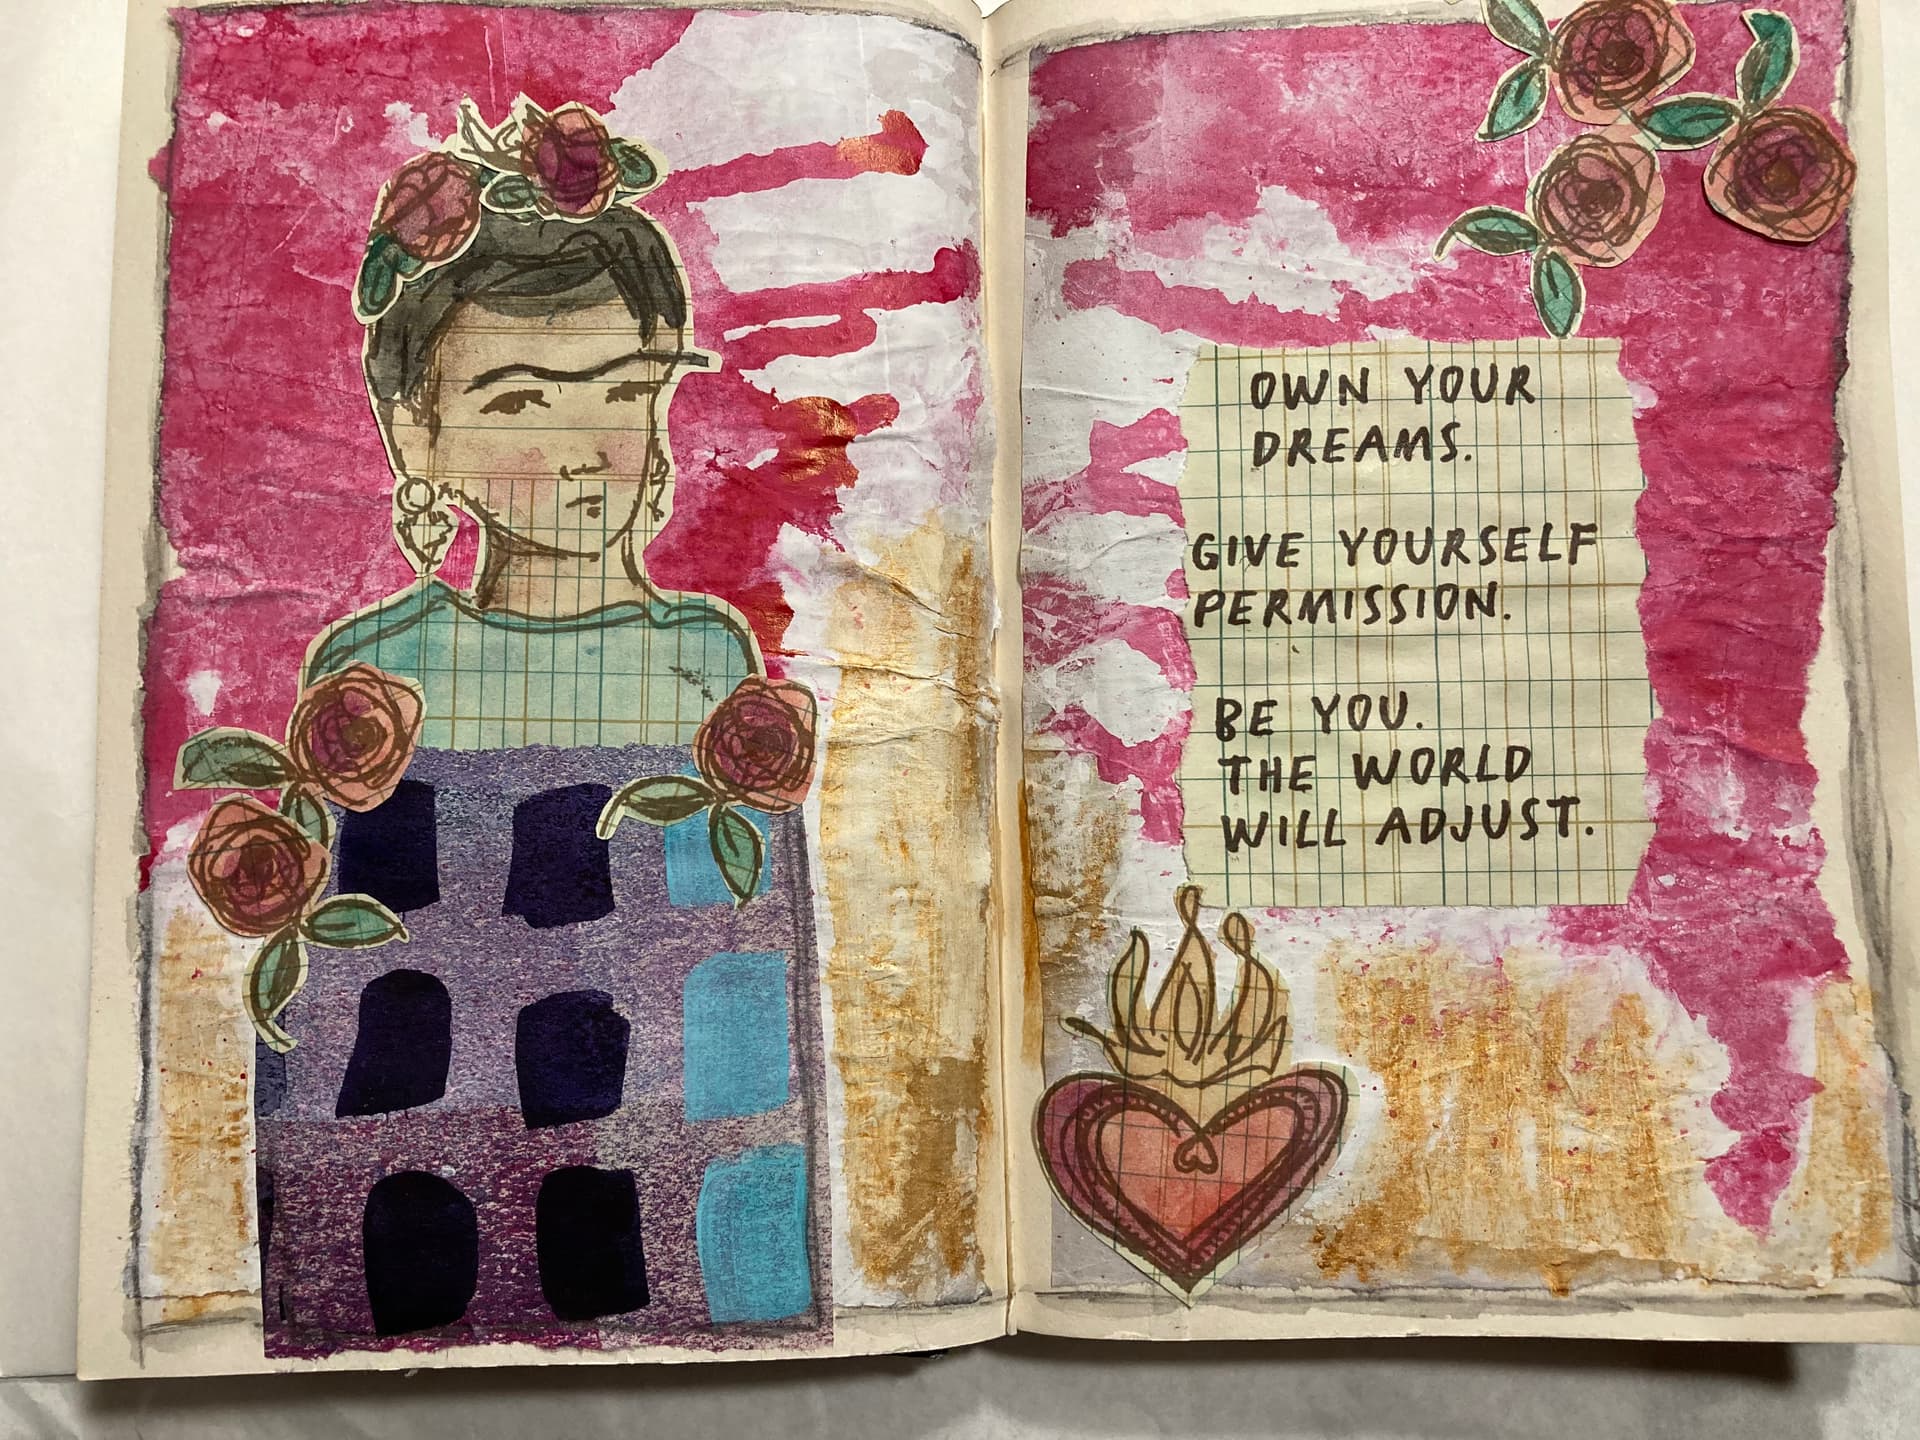 OWN YOUR
DREAMS.
GIVE YOURSELF
PERMISSION.
BE YOU.
THE WORLD
WILL ADJUST.